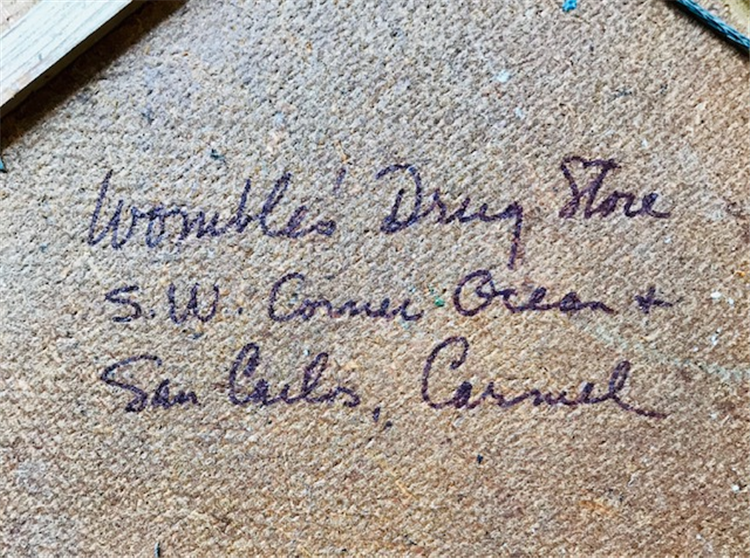 Womble's Drug Store
S.W. Corner Ocean +
San Carlos, Carmel